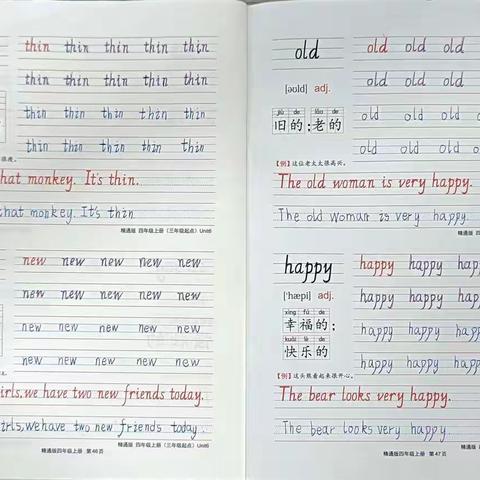 thin thin thin thin thin
thin thin thin thin thin
thin thin thin thin thin
thin thin thin thin thin
hat monkey. It's thin.
hat monkey. It's thin
精通版 四年级上册（三年级起点）Unit6
new new new new new
new new new new new
new new new new new
new new new new new
irls,we have two new friends today.
irls,we have two new friends today.
精通版 四年级上册（三年级起点）Unit6
精通版四年级上册 第46页
old
old old old
old old old
[əʊld] adj.
old old old
jiù de lǎo de
旧的;老的
old old old
【例】这位老太太很高兴。
The old woman is very happy.
The old woman is very happy.
happy
happy happy
['hæpi] adj.
happy happy
xìng fú de
幸福的;
happy happy
kuài lè de
快乐的
happy happy
【例】这头熊看起来很开心。
The bear looks very happy.
The bear looks very happy.
精通版四年级上册 第47页